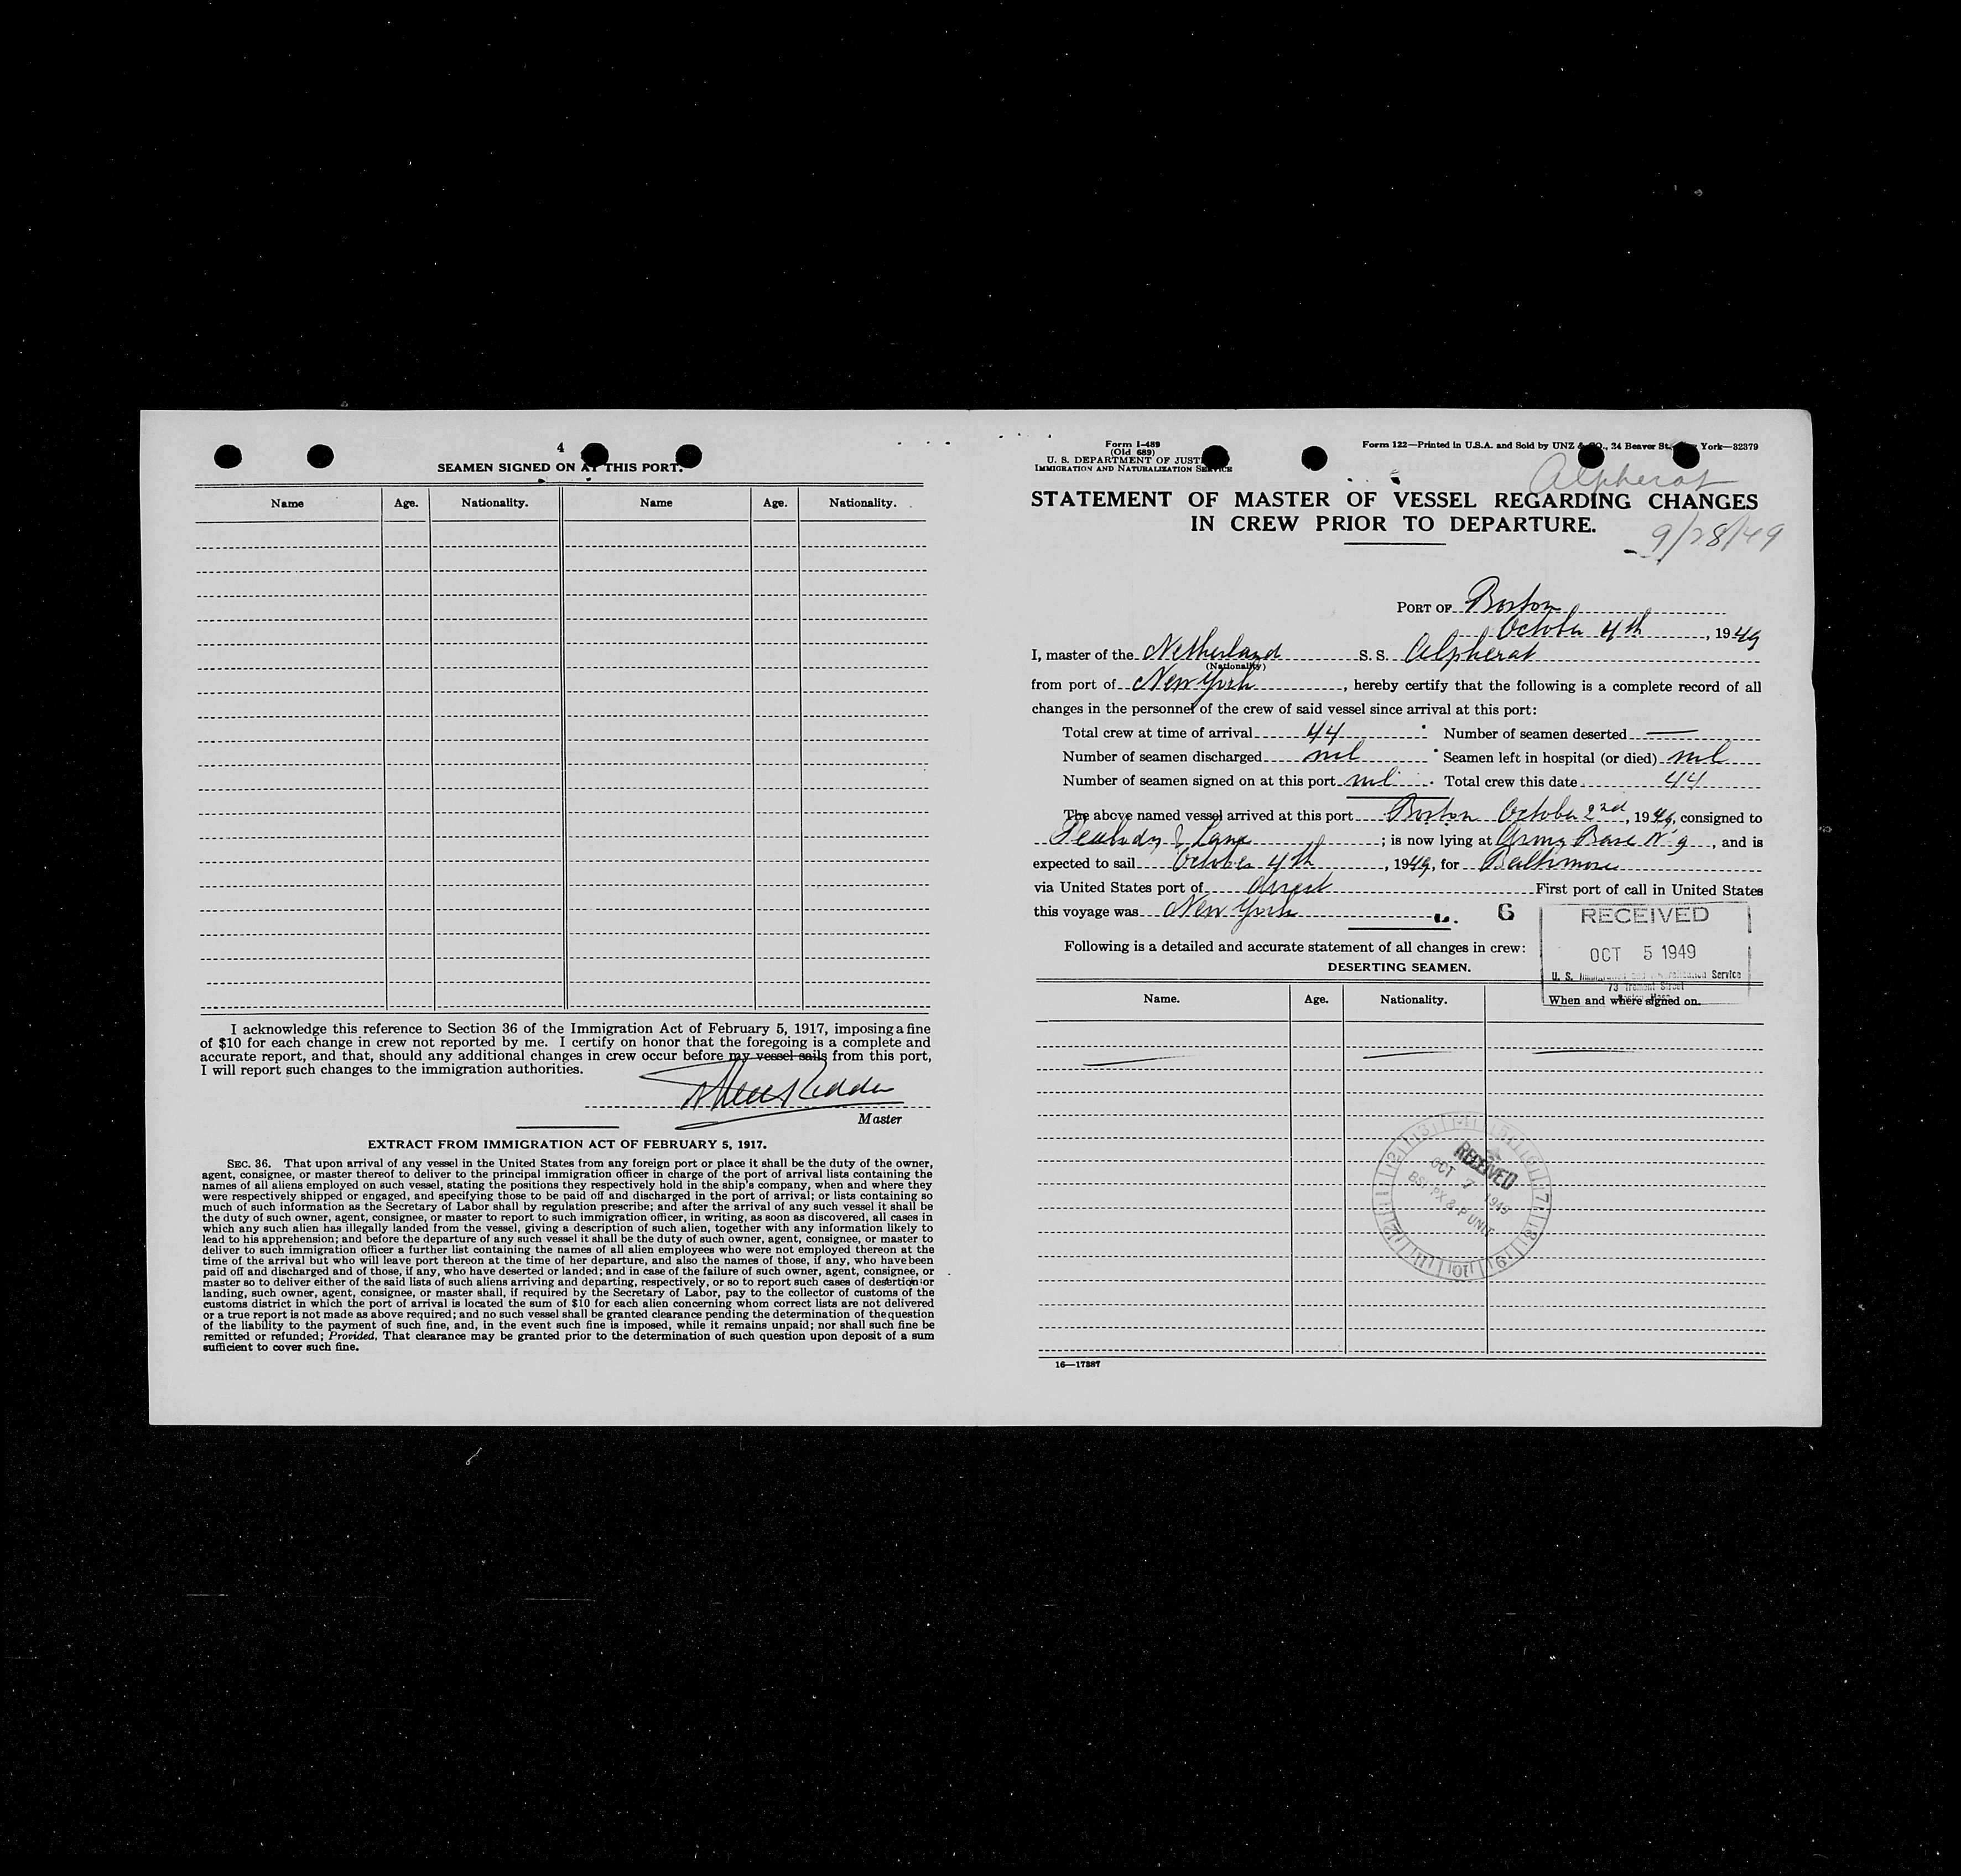 4
SEAMEN SIGNED ON AT THIS PORT.
Name Age. Nationality. Name Age. Nationality.
I acknowledge this reference to Section 36 of the Immigration Act of February 5, 1917, imposing a fine
of $10 for each change in crew not reported by me. I certify on honor that the foregoing is a complete and
accurate report, and that, should any additional changes in crew occur before my vessel sails from this port,
I will report such changes to the immigration authorities.
Master
EXTRACT FROM IMMIGRATION ACT OF FEBRUARY 5, 1917.
SEC. 36. That upon arrival of any vessel in the United States from any foreign port or place it shall be the duty of the owner,
agent, consignee, or master thereof to deliver to the principal immigration officer in charge of the port of arrival lists containing the
names of all aliens employed on such vessel, stating the positions they respectively hold in the ship's company, when and where they
were respectively shipped or engaged, and specifying those to be paid off and discharged in the port of arrival; or lists containing so
much of such information as the Secretary of Labor shall by regulation prescribe; and after the arrival of any such vessel it shall be
the duty of such owner, agent, consignee, or master to report to such immigration officer, in writing, as soon as discovered, all cases in
which any such alien has illegally landed from the vessel, giving a description of such alien, together with any information likely to
lead to his apprehension; and before the departure of any such vessel it shall be the duty of such owner, agent, consignee, or master to
deliver to such immigration officer a further list containing the names of all alien employees who were not employed thereon at the
time of the arrival but who will leave port thereon at the time of her departure, and also the names of those, if any, who have been
paid off and discharged and of those, if any, who have deserted or landed; and in case of the failure of such owner, agent, consignee, or
master so to deliver either of the said lists of such aliens arriving and departing, respectively, or so to report such cases of desertion or
landing, such owner, agent, consignee, or master shall, if required by the Secretary of Labor, pay to the collector of customs of the
customs district in which the port of arrival is located the sum of $10 for each alien concerning whom correct lists are not delivered
or a true report is not made as above required; and no such vessel shall be granted clearance pending the determination of the question
of the liability to the payment of such fine, and, in the event such fine is imposed, while it remains unpaid; nor shall such fine be
remitted or refunded; Provided, That clearance may be granted prior to the determination of such question upon deposit of a sum
sufficient to cover such fine.
Form I-489
(Old 689)
U. S. DEPARTMENT OF JUSTICE
IMMIGRATION AND NATURALIZATION SERVICE
Form 122—Printed in U.S.A. and Sold by UNZ & CO., 24 Beaver St., New York—32379
Alpherat
STATEMENT OF MASTER OF VESSEL REGARDING CHANGES
IN CREW PRIOR TO DEPARTURE.
9/28/49
PORT OF Boston
October 4th, 1949
I, master of the Netherland S. S. Alpherat
(Nationality)
from port of New York, hereby certify that the following is a complete record of all
changes in the personnel of the crew of said vessel since arrival at this port:
Total crew at time of arrival 44 Number of seamen deserted —
Number of seamen discharged nil Seamen left in hospital (or died) nil
Number of seamen signed on at this port nil Total crew this date 44
The above named vessel arrived at this port Boston October 2nd, 1949, consigned to
Peabody & Lane; is now lying at Army Base No 9, and is
expected to sail October 4th, 1949, for Baltimore
via United States port of direct First port of call in United States
this voyage was New York
6
RECEIVED
OCT 5 1949
U. S. Immigration and Naturalization Service
73 Tremont Street
Following is a detailed and accurate statement of all changes in crew:
DESERTING SEAMEN.
Name. Age. Nationality. When and where signed on.
RECEIVED
OCT 7 1949
BSI PX & P UNIT
16—17387